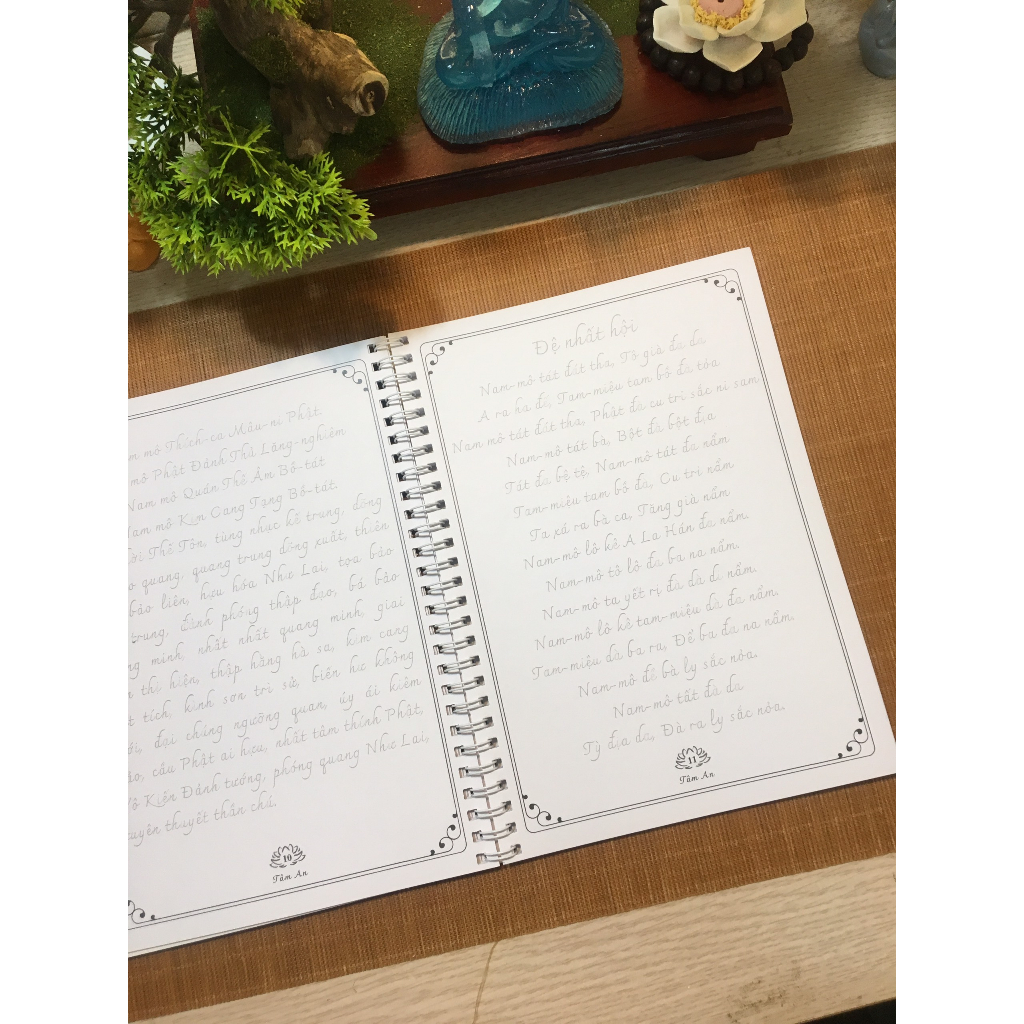 mô Thích-ca Mâu-ni Phật.
mô Phật Đảnh Thủ Lăng-nghiêm
Nam mô Quán Thế Âm Bồ-tát
Nam mô Kim Cang Tạng Bồ-tát.
Thế Tôn, tùng nhục kế trung, dõng
quang, quang trung dõng xuất, thiên
bảo liên, hữu hóa Như Lai, tọa bảo
trung, đảnh phóng thập đạo, bá bảo
minh, nhất nhất quang minh, giai
thị hiện, thập hằng hà sa, kim cang
tích, kình sơn trì sử, biến hư không
đại chúng ngưỡng quan, úy ái kiêm
cầu Phật ai hựu, nhất tâm thính Phật,
Vô Kiến Đảnh tướng, phóng quang Như Lai,
tuyên thuyết thần chú.
10
Tâm An
Đệ nhất hội
Nam-mô tát đát tha, Tô già đa da
A ra ha đế, Tam-miệu tam bồ đà tỏa
Nam mô tát đát tha, Phật đà cu tri sắc ni sam
Nam-mô tát bà, Bột đà bột địa
Tát đa bệ tệ, Nam-mô tát đa nẩm
Tam-miệu tam bồ đà, Cu tri nẩm
Ta xá ra bà ca, Tăng già nẩm
Nam-mô lô kê A La Hán đa nẩm.
Nam-mô tô lô đa ba na nẩm.
Nam-mô ta yết rị đà da di nẩm.
Nam-mô lô kê tam-miệu dà đa nẩm.
Tam-miệu dà ba ra, Để ba đa na nẩm.
Nam-mô đề bà ly sắc nỏa.
Nam-mô tất đà da
Tỳ địa da, Đà ra ly sắc nỏa.
11
Tâm An